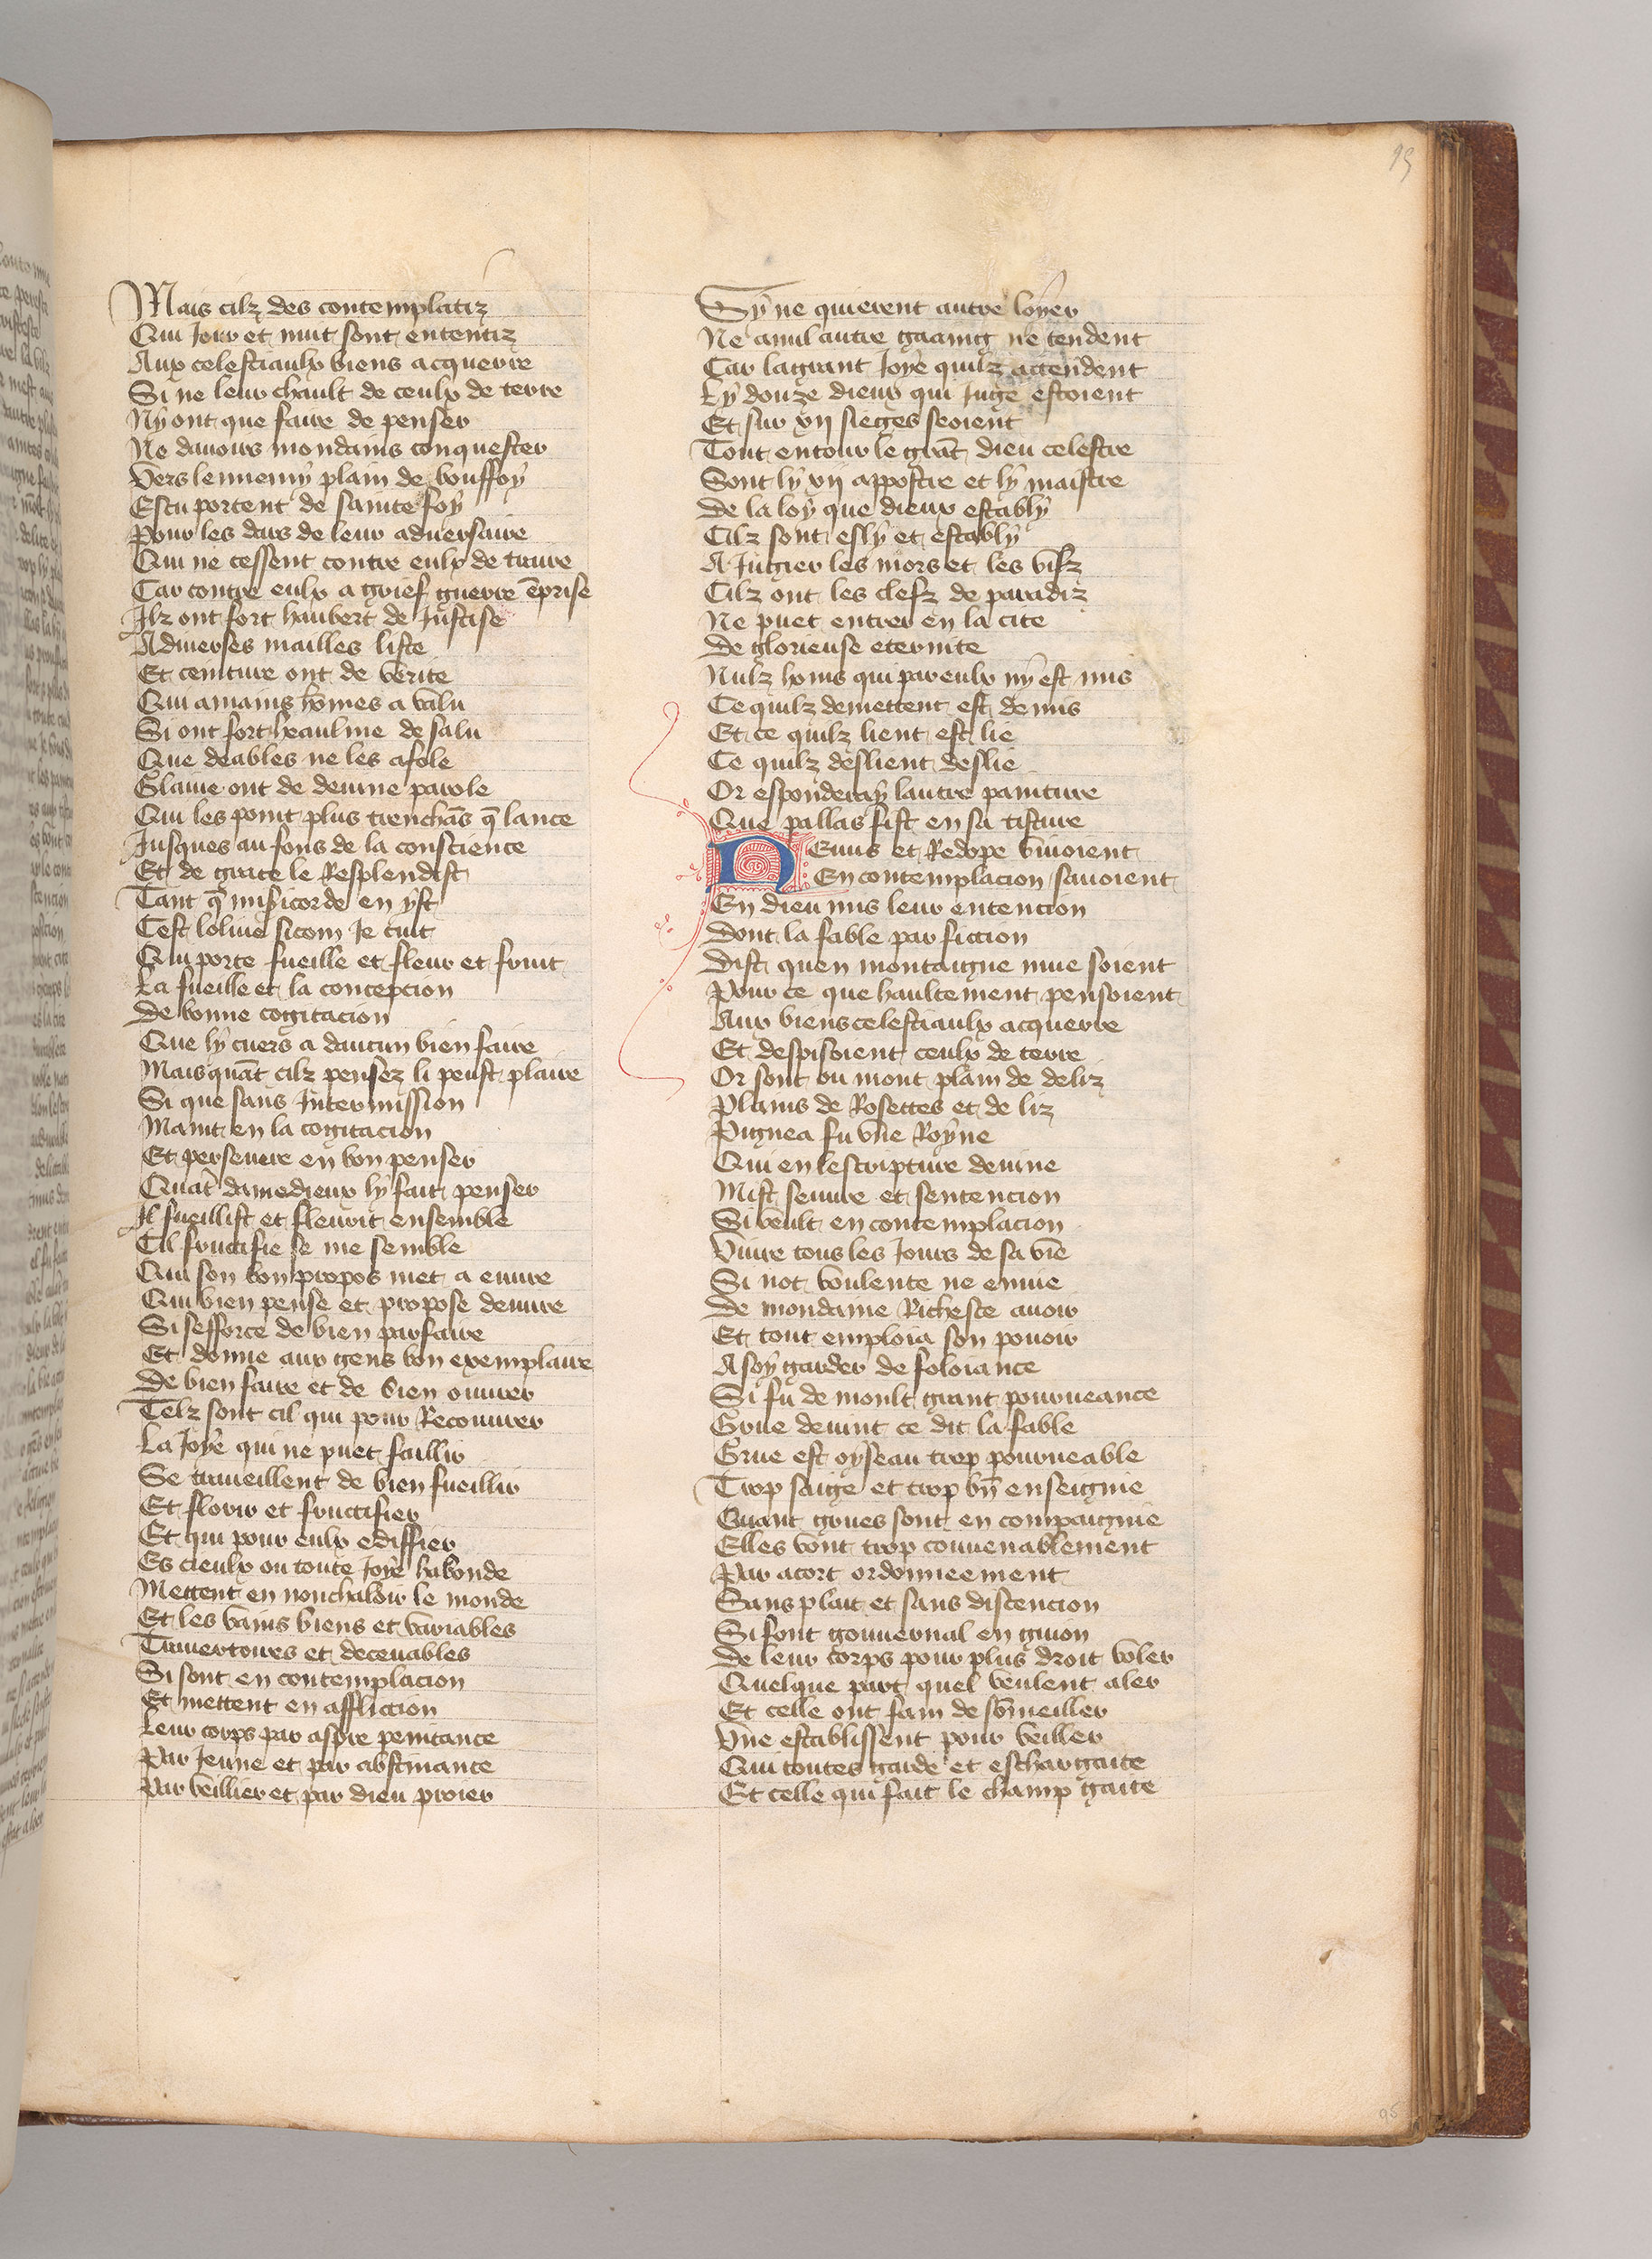 95
Mais cilz des contemplatiz
Qui Jour et nuit sont ententiz
Aux celestiaulx biens acquerre
Si ne leur chault de ceulx de terre
Ny ont que faire de penser
Ne davoirs mondains conquester
Vers lennemy plain de bouffoy
Escu portent de sainte foy
Pour les dars de leur adversaire
Qui ne cessent contre eulx de traire
Car contre eulx a grief guerre ēprise
Ilz ont fort haubert de Justise
A diverses mailles liste
Et ceinture ont de verite
Qui a mains hōmes a valu
Si ont fort heaulme de salu
Que deables ne les afole
Glaive ont de devine parole
Qui les point plus trenchās q̄ lance
Jusques au fons de la conscience
Et de grace le Resplendist
Tant q̄ misicorde en yst
Cest lolive sicom Je cuit
Qui porte fueille et fleur et fruit
La fueille et la concepcion
De bonne cogitacion
Que ly cuers a daucun bien faire
Mais quāt cilz pensez li peust plaire
Si que sans Intermission
Maint en la cogitacion
Et persevere en bon penser
Quāt damedieux ly fait penser
Il fueillist et fleurit ensemble
Cil fructifie se me semble
Qui son bon propos met a euvre
Qui bien pense et propose deuvre
Si sefforce de bien parfaire
Et donne aux gens bon exemplaire
De bien faire et de bien ouvrer
Telz sont cil qui pour Recouvrer
La Joye qui ne puet faillir
Se traveillent de bien fueillir
Et florir et fructifier
Et qui pour eulx ediffier
Es cieulx ou toute Joye habonde
Mettent en nonchaloir le monde
Et les vains biens et variables
Travertoires et decevables
Si sont en contemplacion
Et mettent en affliccion
Leur corps par aspre penitance
Par Jeune et par abstinance
Par veillier et par dieu proier
Sy ne quierent autre loyer
Ne a nul autre gaaing ne tendent
Car la grant Joye quilz attendent
Ly douze dieux qui Juge estoient
Et sur xij sieges seoient
Tout entour le grāt dieu celestre
Sont ly xij appostre et ly maistre
De la loy que dieux establý
Cilz sont esly et establý
A Jugier les mors et les vifz
Cilz ont les clefz de paradiz
Ne puet entrer en la cite
De glorieuse eternite
Nulz homs qui par eulx ny est mis
Ce quilz demettent est demis
Et ce quilz lient est lie
Ce quilz deslient deslie
Or esponderay lautre painture
Que pallas fist en sa tisture
Emus et Redope vivoient
En contemplacion savoient
En dieu mis leur entencion
Dont la fable par ficcion
Dist quen montaigne mue soient
Pour ce que haultement pensoient
Aux biens celestiaulx acquerre
Et despisoient ceulx de terre
Or sont ou mont plain de deliz
Plains de Rosettes et de liz
Pignea fu une Royne
Qui en lescripture devine
Mist seuvre et sentencion
Si veult en contemplacion
Vivre tous les Jours de sa vie
Si not voulente ne envie
De mondaine Richesce avoir
Et tout emploia son pouoir
A soy garder de foloiance
Si fu de moult grant pourveance
Grue devint ce dit la fable
Grue est oyseau trop pourveable
Trop saige et trop bn̄ enseignie
Quant grues sont en compaignie
Elles vont trop convenablement
Par acort ordonneement
Sans plait et sans discencion
Si font gouvernal en guion
De leur corps pour plus droit voler
Quelque part quel veulent aler
Et celle ont fain de sōmeiller
Une establissent pour veiller
Qui toutes garde et eschargaite
Et celle qui fait le champ gaite
95